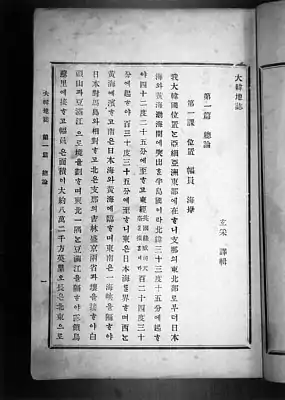 大韓地誌
玄采 譯輯
第一篇 總論
第一課 位置 幅員 海岸
我大韓國位置と亞細亞洲東部에在하니支那의東北部로부터日本
海와黃海渤海間에突出한半島國이라北緯三十三度十五分에起하
야四十二度二十五分에至하고東經 百二十四度三十
分에起하야百三十度三十五分에至하니東은日本海를界하며西는
黃海에濱하고南은日本海와黃海에臨하며東南은一海峽을隔하야
日本對馬島와相對하고北은支那의吉林盛京兩省과壤을接하야白
頭山과豆滿江으로境을劃하며東北一隅는豆滿江을隔하야
里에接하고幅員은面積이大約八萬二千方英里오長은北東으로
大韓地誌 第一篇 總論
一